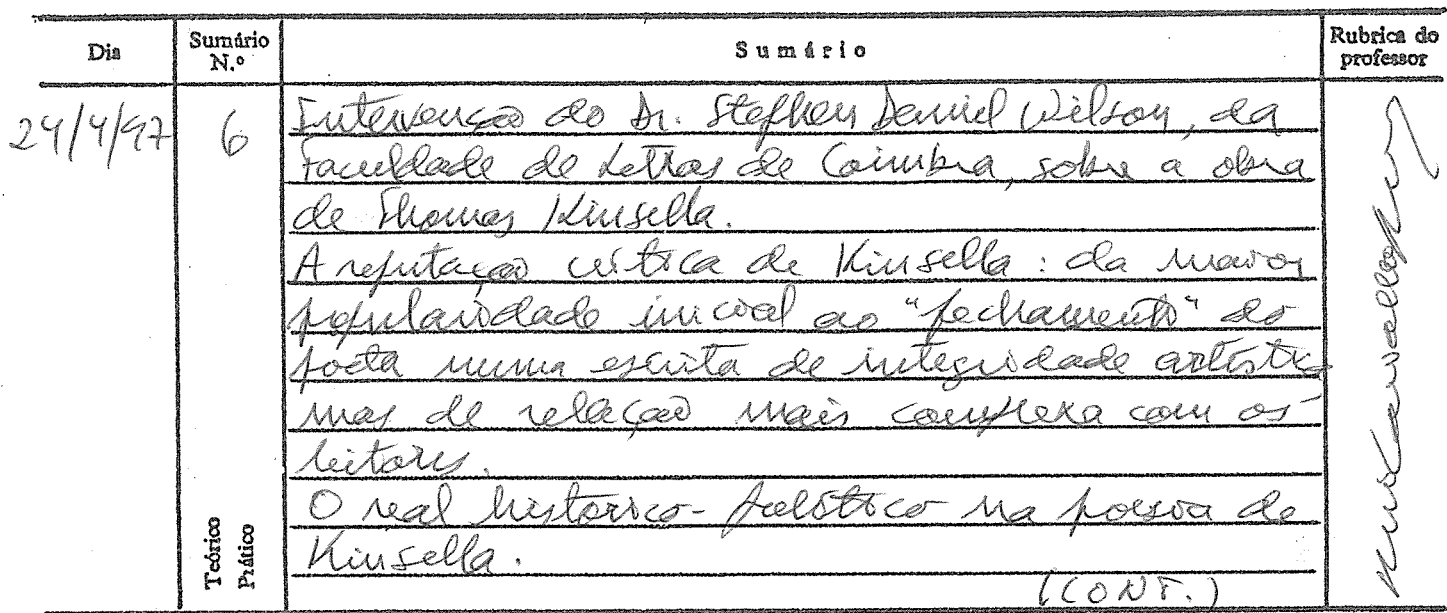 Dia
Sumário N.º
Sumário
Rubrica do professor
24/4/97
6
Intervenção do Dr. Stephen Daniel Wilson, da
Faculdade de Letras de Coimbra, sobre a obra
de Thomas Kinsella.
A reputação crítica de Kinsella : da maior
popularidade inicial ao "fechamento" do
poeta numa escrita de integridade artística
mas de relação mais complexa com os
leitores.
O real histórico-político na poesia de
Kinsella.
(CONT.)
Teórico
Prático